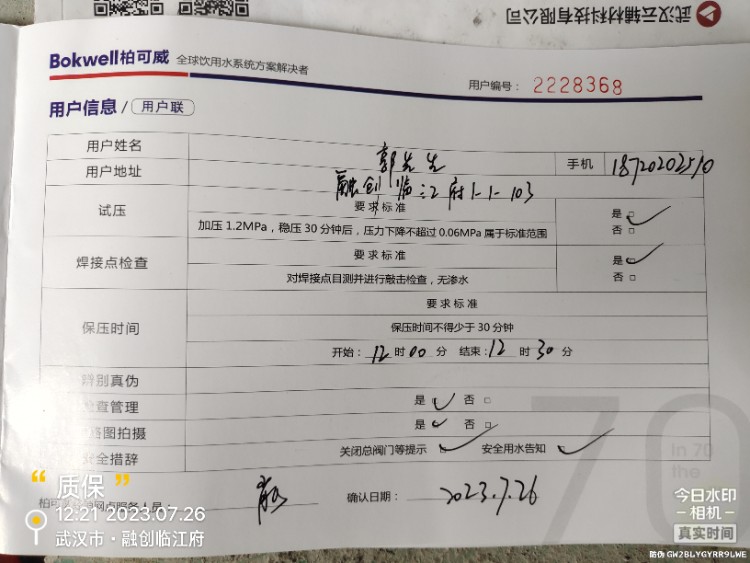 武汉云辅材科技有限公司
Bokwell柏可威 全球饮用水系统方案解决者
用户编号： 2228368
用户信息 / 用户联
用户姓名 郭先生 手机 18720202510
用户地址 融创临江府1-1-103
试压 要求标准 是 □
加压 1.2MPa，稳压 30 分钟后，压力下降不超过 0.06MPa 属于标准范围 否 □
焊接点检查 要求标准 是 □
对焊接点目测并进行敲击检查，无渗水 否 □
要求标准
保压时间 保压时间不得少于 30 分钟
开始：12 时 00 分 结束：12 时 30 分
辨别真伪
检查管理 是 □ 否 □
路图拍摄 是 □ 否 □
安全措辞 关闭总阀门等提示 安全用水告知
70
In 70
the
柏可 网点服务人员： 确认日期： 2023.7.26
“ 质保 ”
12:21 2023.07.26
武汉市·融创临江府
今日水印
相机
真实时间
防伪 GW2BLYGYRR9LWE